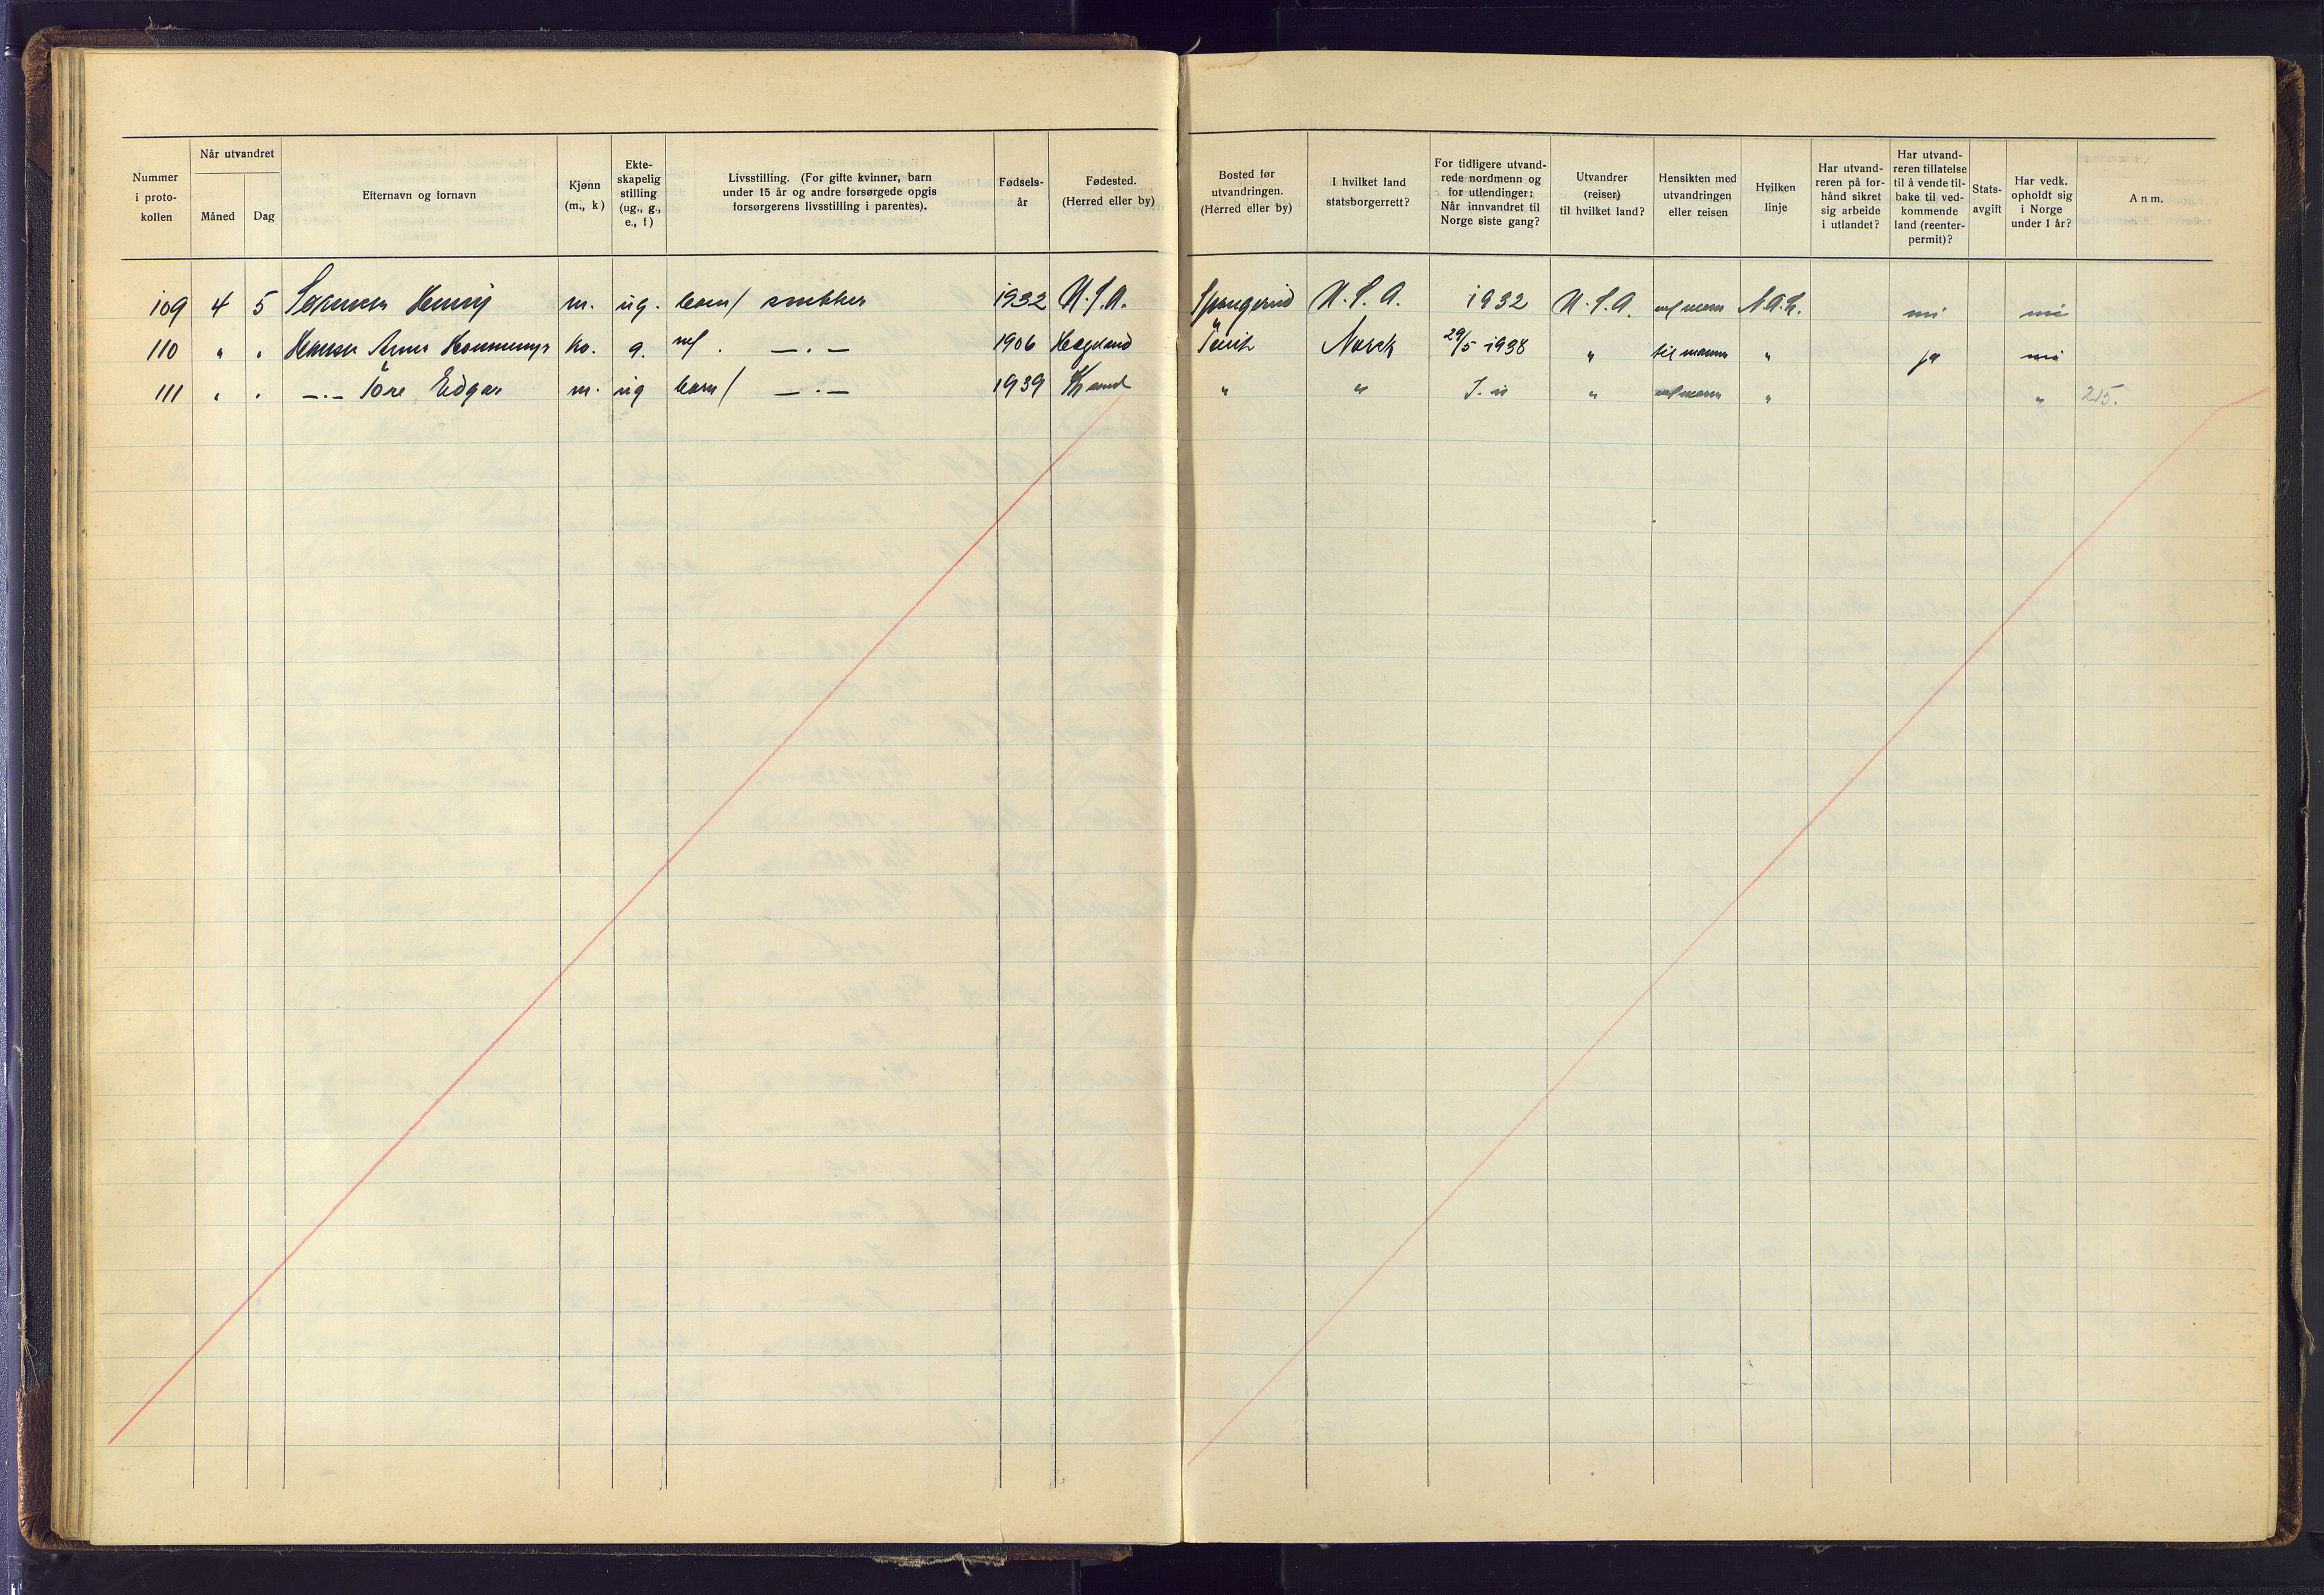 Nummer i proto- kollen | Når utvandret Måned Dag | Efternavn og fornavn | Kjønn (m., k) | Ekte- skapelig stilling (ug., g., e., f) | Livsstilling. (For gifte kvinner, barn under 15 år og andre forsørgede opgis forsørgerens livsstilling i parentes). | Fødsels- år | Fødested. (Herred eller by) | Bosted før utvandringen. (Herred eller by) | I hvilket land statsborgerrett? | For tidligere utvand- rede nordmenn og for utlendinger: Når innvandret til Norge siste gang? | Utvandrer (reiser) til hvilket land? | Hensikten med utvandringen eller reisen | Hvilken linje | Har utvand- reren på for- hånd sikret sig arbeide i utlandet? | Har utvand- reren tillatelse til å vende til- bake til ved- kommende land (reenter- permit)? | Stats- avgift | Har vedk. opholdt sig i Norge under 1 år? | Anm.
109 4 5 Henry m. ug. barn/ snekker 1932 U.S.A. Spangereid U.S.A. 1932 U.S.A. N.A.L. nei nei
110 " " Hansen Anna ko. g. —.— 1906 Hægeland Norsk 29/5 1938 " til mann " ja nei
111 " " —.— Tore Edgar m. ug barn/ —.— 1939 " " " " " 215.